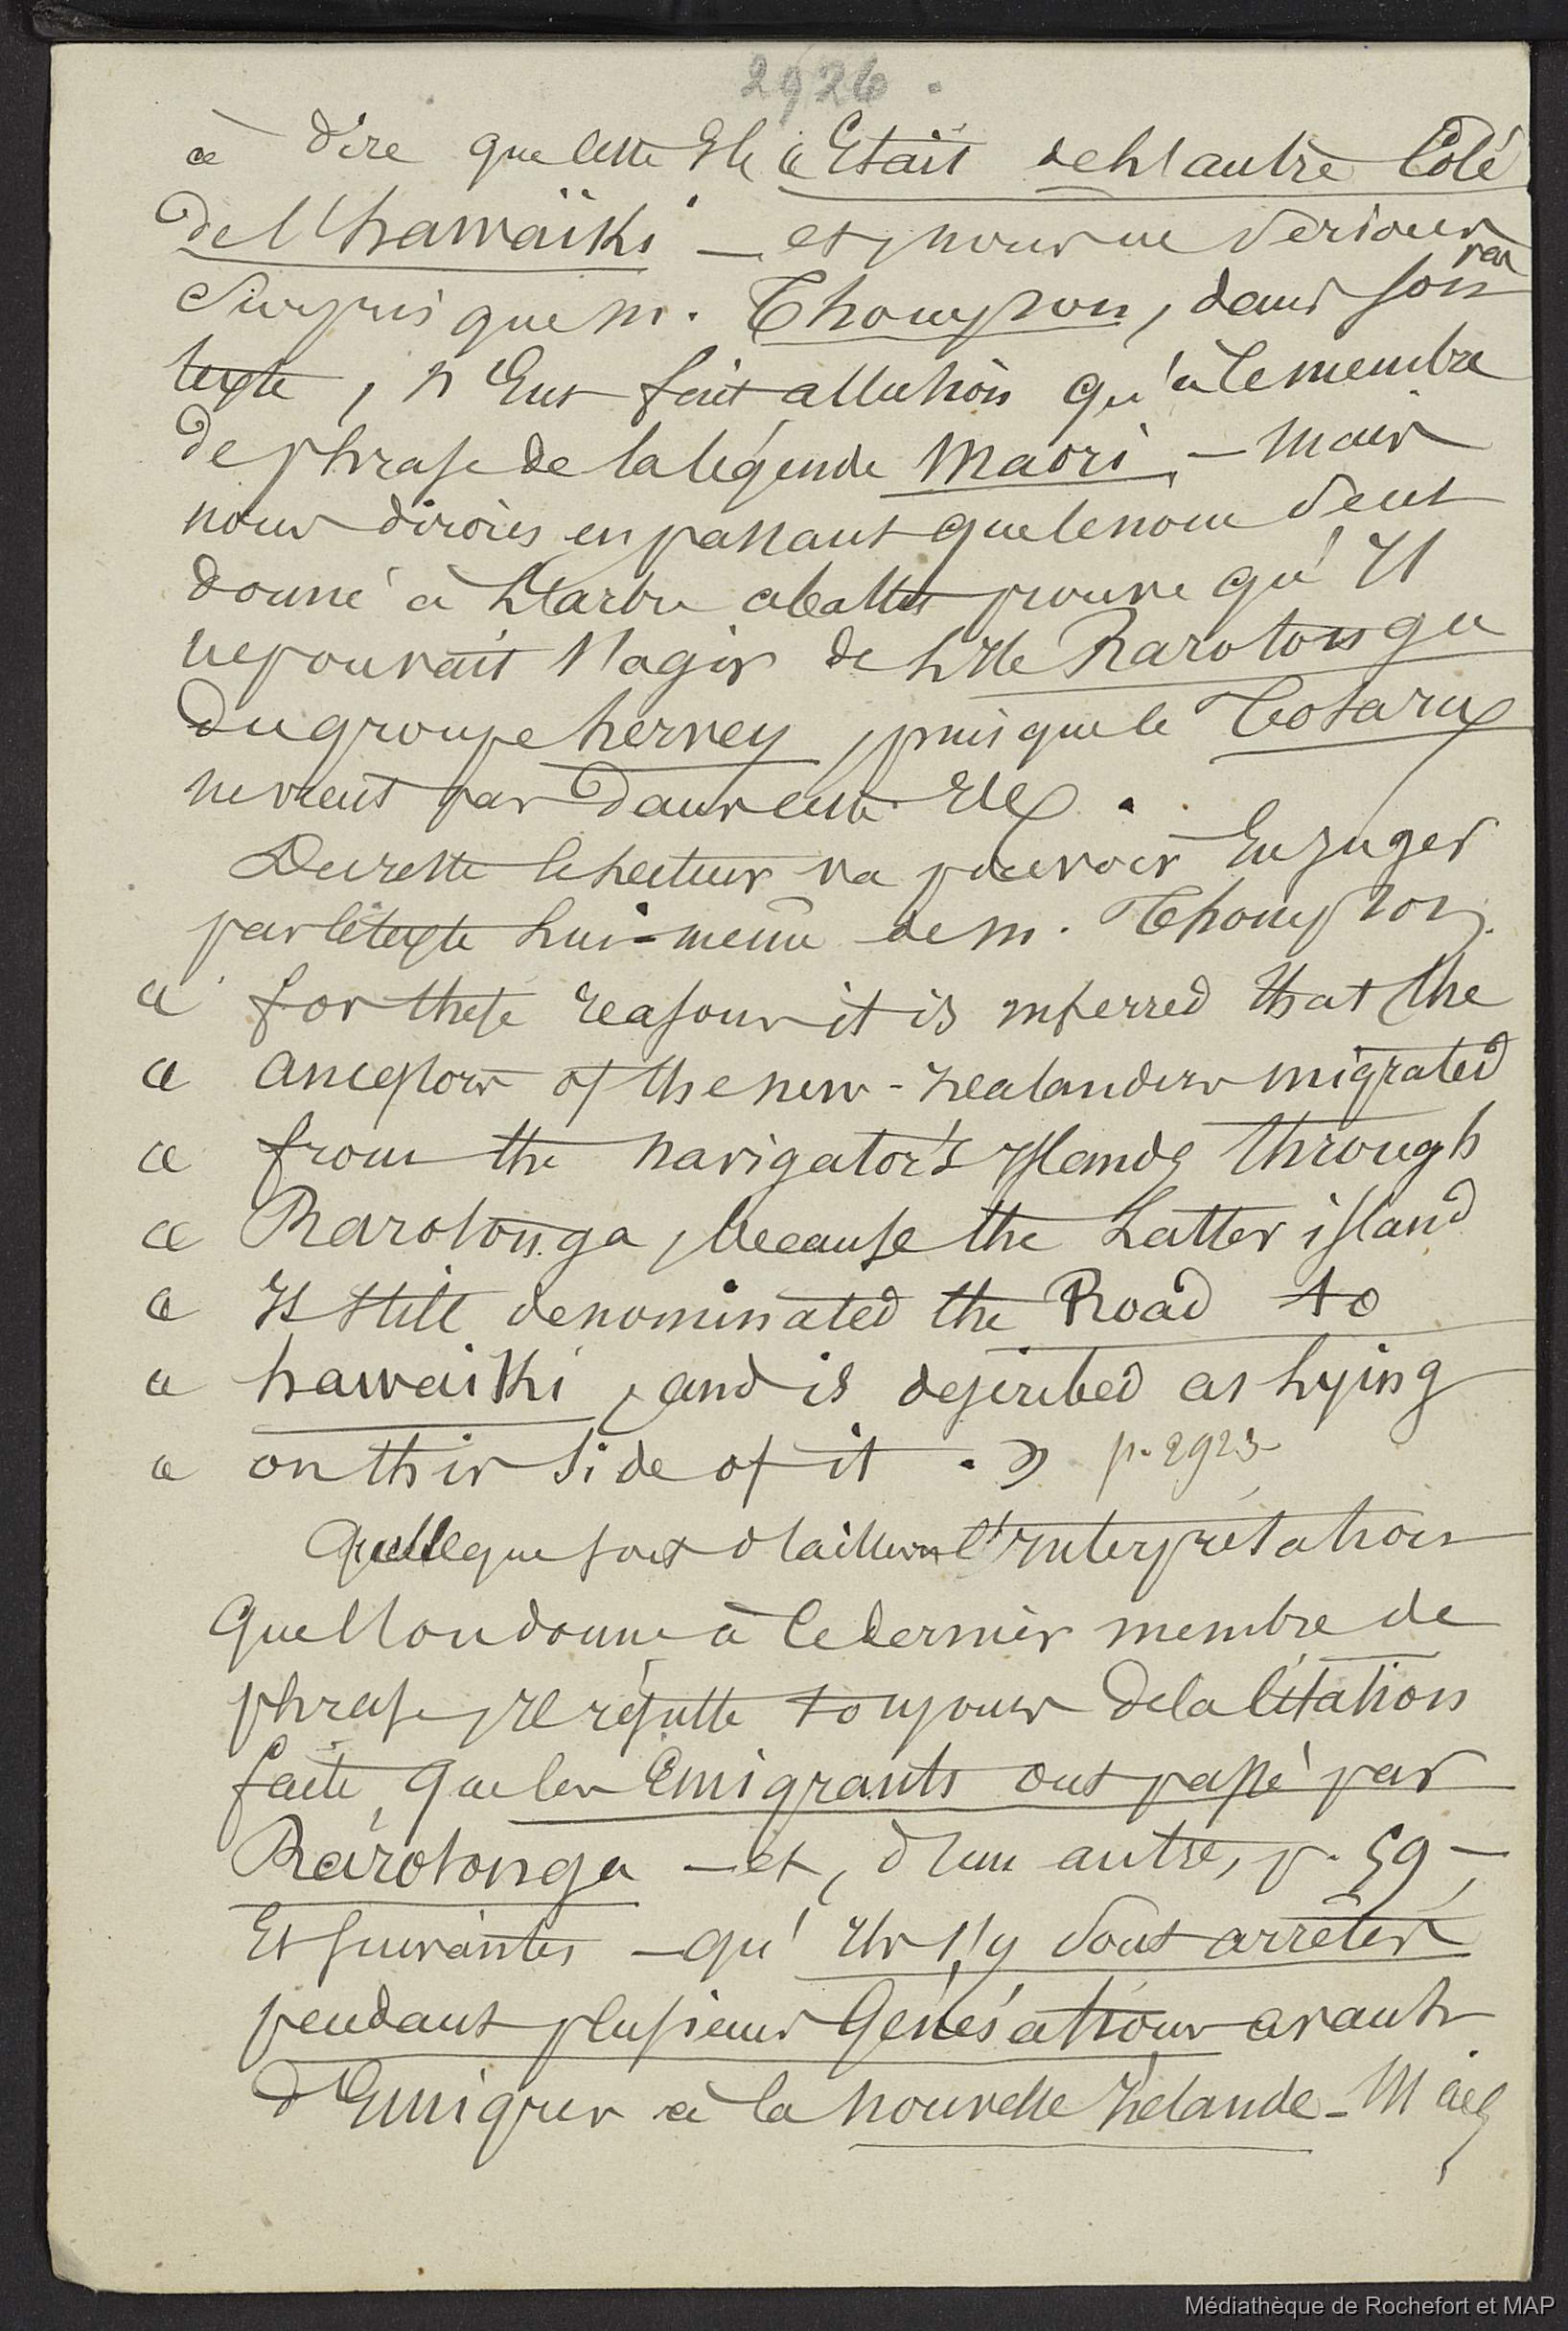 2926.
à dire que cette Ile « Etait de l'autre Côté
de l'hawaïki — et nous ne serions
pas
surpris que M. Thompson, dans son
texte, n'Eut fait allusion qu'à ce membre
de phrase de la légende Maori — Mais
nous dirons en passant que le nom seul
donné à l'arbre abattu prouve qu'Il
ne pouvait s'agir de l'Ile Rarotonga
du groupe hervey, puisque le Totara
ne vient pas dans cette Ile.
Du reste le lecteur va pouvoir En juger
par le texte lui-même de M. Thompson.
« for these reasons it is inferred that the
« ancestors of the new-zealanders migrated
« from the navigator's Islands through
« Rarotonga, because the Latter island
« Is still denominated the Road to
« hawaiki, and is described as lying
« on this side of it. » p. 2925
Quelle que soit d'ailleurs l'Interprétation
que l'on donne à ce dernier membre de
phrase, Il résulte toujours de la Citation
faite, que les Emigrants ont passé par
Rarotonga — et, d'un autre, p. 59 —,
Et suivantes — qu'Ils s'y sont arrêtés
pendant plusieurs Générations avant
d'Emigrer à la Nouvelle Zélande — Mais
Médiathèque de Rochefort et MAP